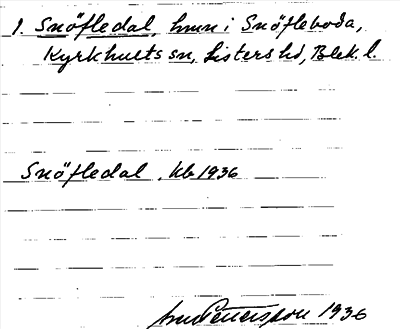 1. Snöfledal, hmn i Snöfleboda,
Kyrkhults sn, Listers hd, Blek. l.
Snöfledal . kb 1936
Pettersson 1936